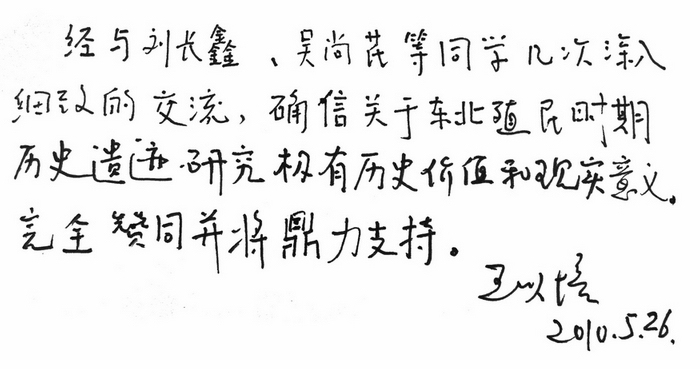 经与刘长鑫、吴尚芪等同学几次深入
细致的交流，确信关于东北殖民时期
历史遗迹研究极有历史价值和现实意义。
完全赞同并将鼎力支持。
王以培
2010.5.26.